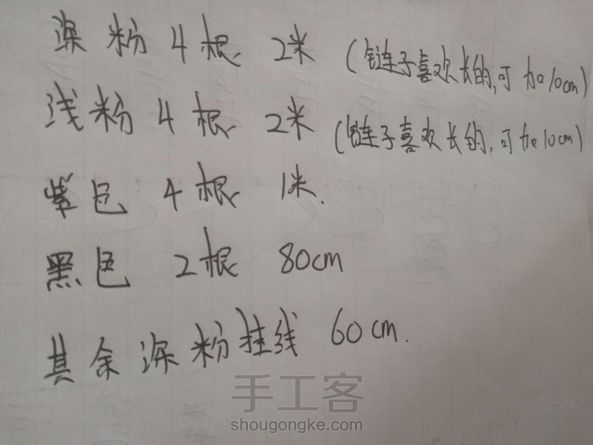 深粉 4根 2米 (链子喜欢长的,可加10cm)
浅粉 4根 2米 (链子喜欢长的,可加10cm)
紫色 4根 1米.
黑色 2根 80cm
其余深粉挂线 60cm.
手工客
shougongke.com